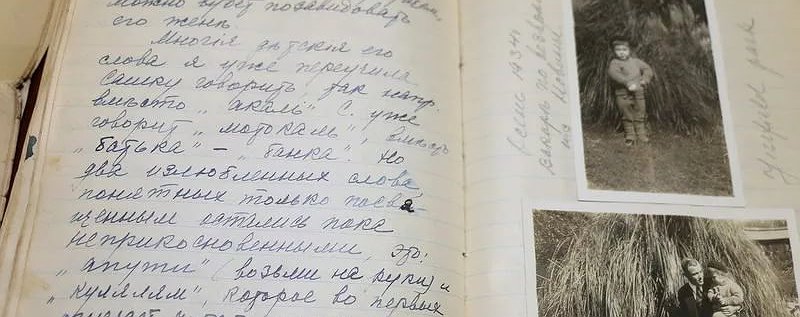 можно будет позавидовать
его жене.
Многiя детскiя его
слова я уже переучила
Сашку говорить, так напр.
вместо „акаль" С. уже
говоритъ „мотокаль", вместо
„батька" – „банка". Но
два излюбленных слова,
понятных только посвя-
щенным остались пока
неприкосновенными, это:
„апути" (возьми на руки) и
„куллялям", которое во первых
осень 1934